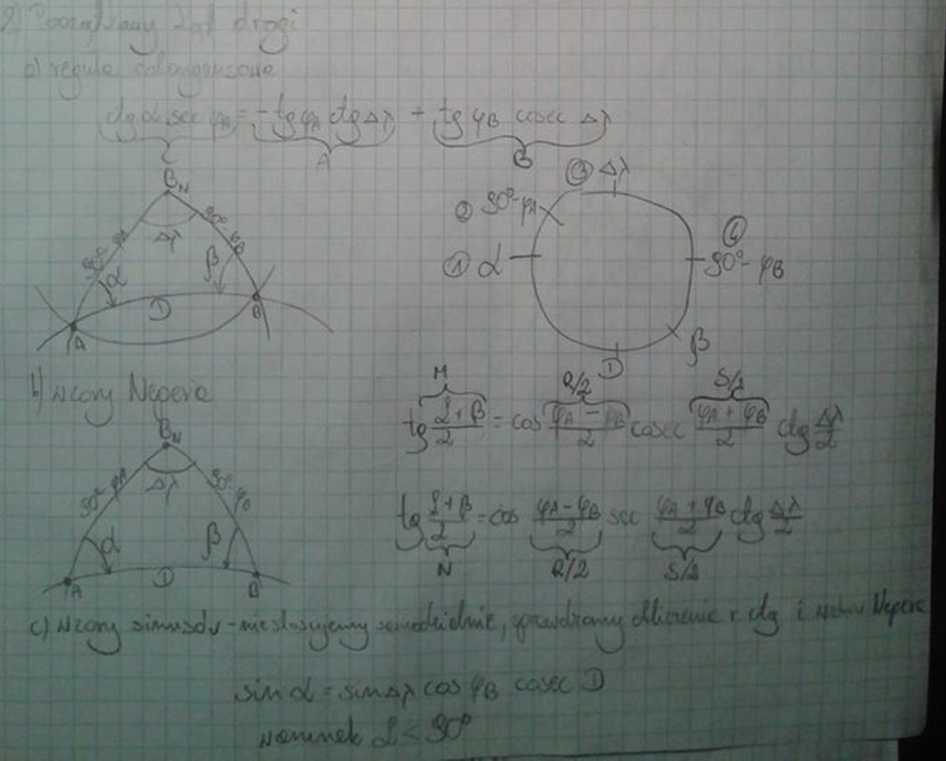 2) Początkowy kąt drogi
a) reguła cotangensowa
ctg α sec φA = -tg φA ctg Δλ + tg φB cosec Δλ
A
B
BN
90° - φA
Δλ
90° - φB
α
β
D
A
B
③ Δλ
② 90° - φA
① α
④
90° - φB
β
D
b) wzory Nepera
BN
90° - φA
Δλ
90° - φB
α
β
D
A
B
M
R/2
S/2
tg α + β / 2 = cos φA - φB / 2 cosec φA + φB / 2 ctg Δλ / 2
tg α + β / 2 = cos φA - φB / 2 sec φA + φB / 2 ctg Δλ / 2
N
R/2
S/2
c) wzory sinusów - nie stosujemy samodzielnie, sprawdzamy obliczenie z ctg i wzorów Nepera
sin α = sin Δλ cos φB cosec D
warunek α < 90°